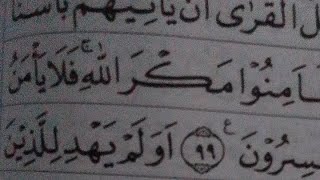 الْقُرٰٓى اَنْ يَّأْتِيَهُمْ بَأْسُنَا
اَمِنُوْا مَكْرَ اللّٰهِ ۚ فَلَا يَأْمَنُ
سِرُوْنَ ﴿٩٩﴾ اَوَلَمْ يَهْدِ لِلَّذِيْنَ